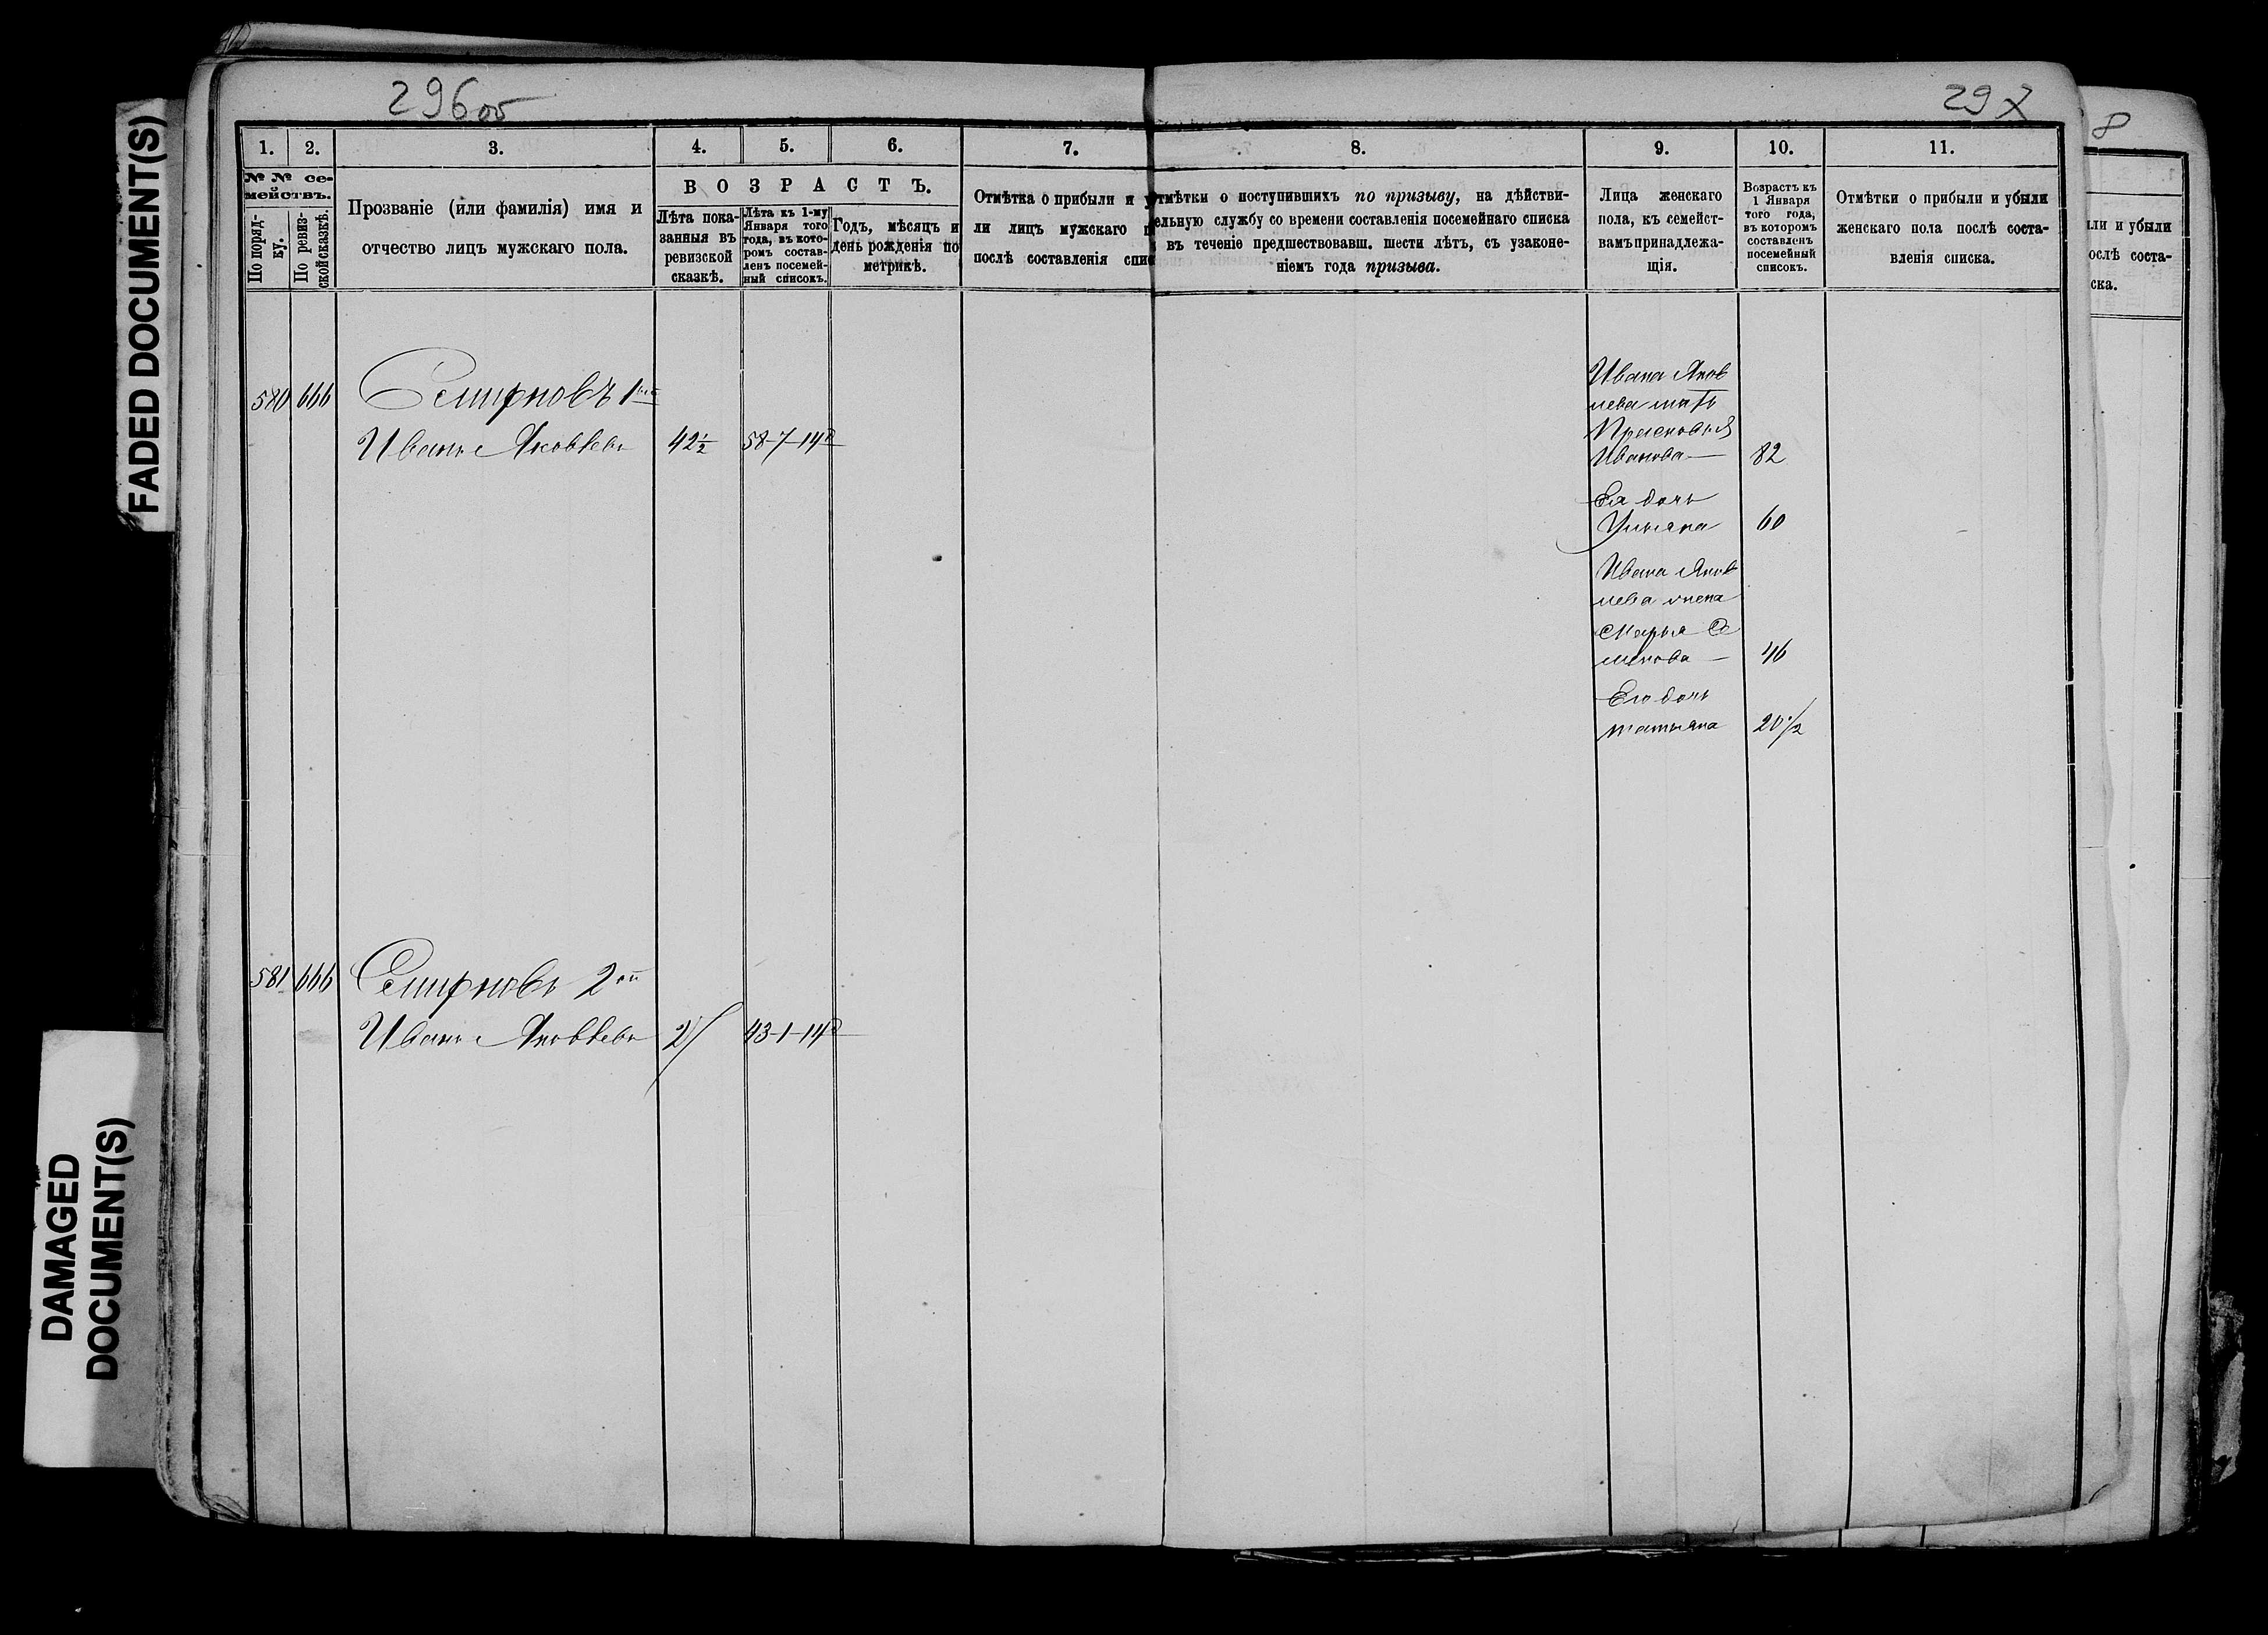 FADED DOCUMENT(S)
DAMAGED
DOCUMENT(S)
296 об
297
8
1. 2. 3. 4. 5. 6. 7. 8. 9. 10. 11.
№ № се-
мействъ.
По поряд-
ку.
По ревиз-
ской сказкѣ.
Прозваніе (или фамилія) имя и
отчество лицъ мужскаго пола.
ВОЗРАСТЪ.
Лѣта пока-
занныя въ
ревизской
сказкѣ.
Лѣта къ 1-му
Января того
года, въ кото-
ромъ состав-
ленъ посемей-
ный списокъ.
Годъ, мѣсяцъ и
день рожденія по
метрикѣ.
Отмѣтка о прибыли и у
ли лицъ мужскаго п
послѣ составленія спис
тмѣтки о поступившихъ по призыву, на дѣйстви-
ельную службу со времени составленія посемейнаго списка
въ теченіе предшествовавш. шести лѣтъ, съ узаконе-
ніемъ года призыва.
Лица женскаго
пола, къ семейст-
вамъ принадлежа-
щія.
Возрастъ къ
1 Января
того года,
въ которомъ
составленъ
посемейный
списокъ.
Отмѣтки о прибыли и убыли
женскаго пола послѣ соста-
вленія списка.
ыли и убыли
ослѣ соста-
ска.
580 666 Семирновъ 1ый
Иванъ Яковлевъ 42½ 58-7-14
Ивана Яков
лева мать
Прасковья
Иванова — 82
Ея дочь
Ульяна 60
Ивана Яков
лева жена
Марья Се
менова — 46
Его дочь
Татьяна 20½
581 666 Семирновъ 2ой
Иванъ Яковлевъ 27 43-1-14